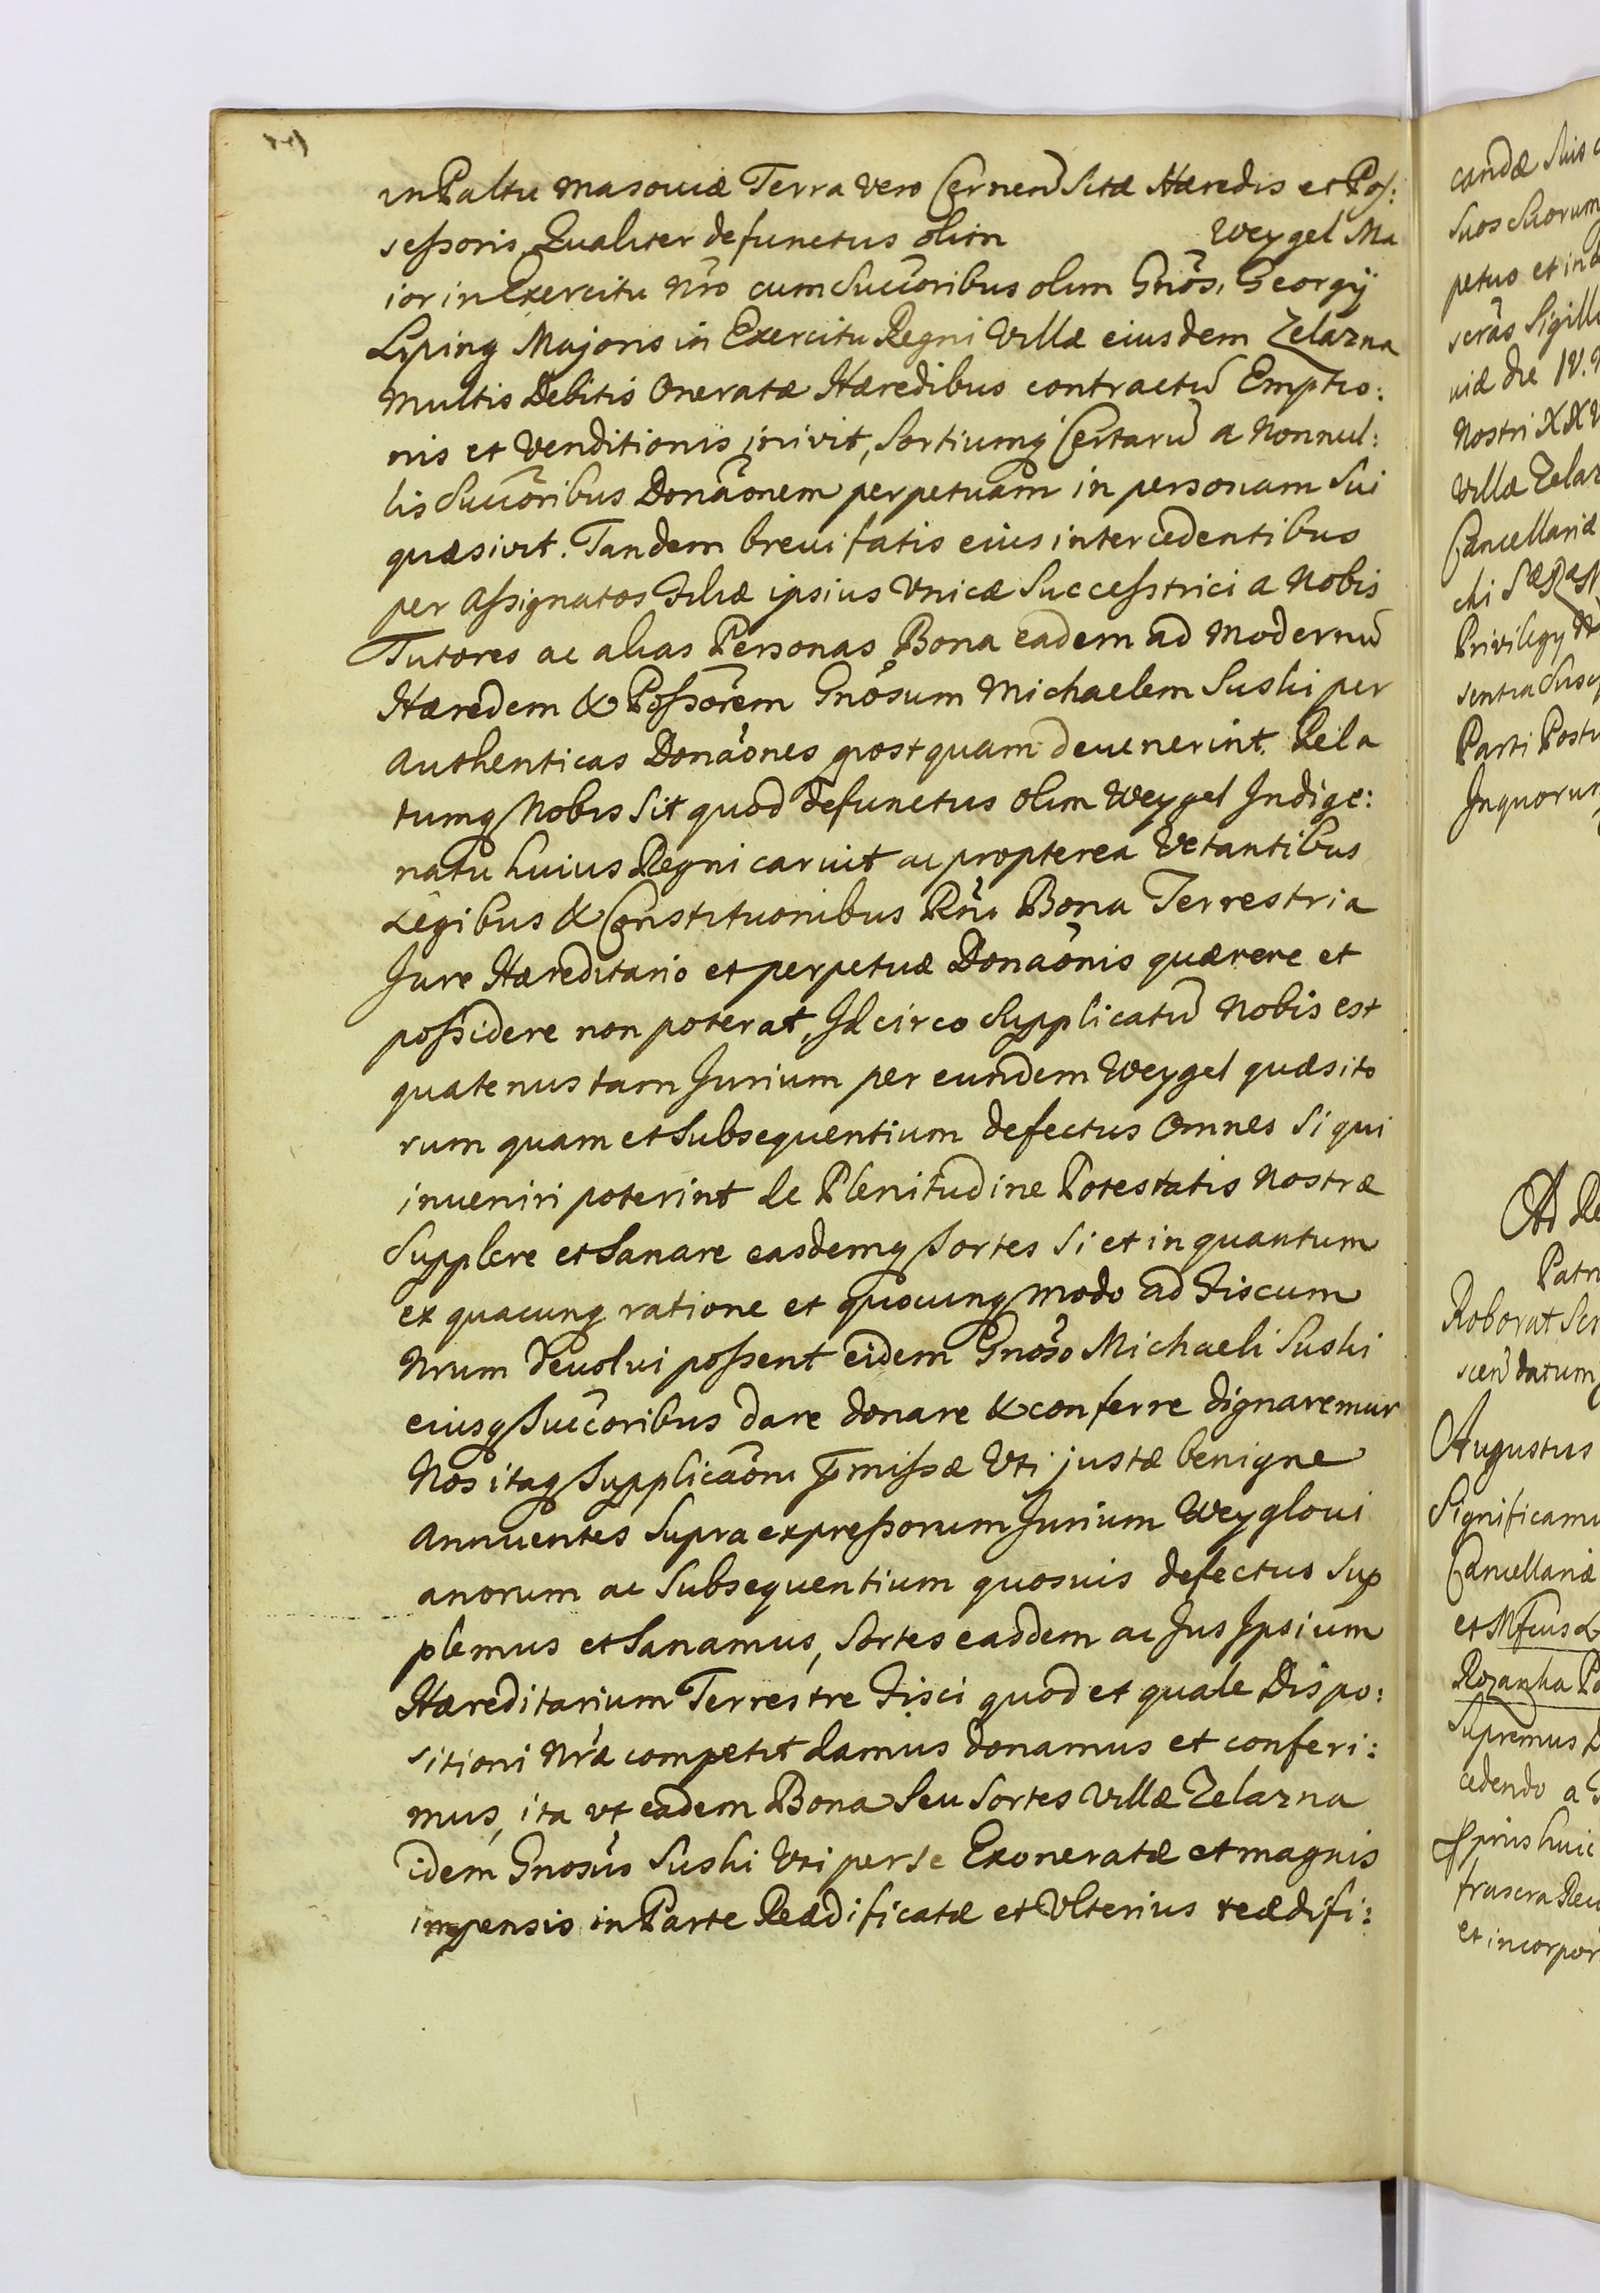 in Paltu Masoviæ Terra vero Cernen̄ Sitæ Hæredis et Pos:
sessoris, Qualiter defunctus olim Weygel Ma
ior in Exercitu Nr̃o cum Succoribus olim Gnosi Georgij
Liping Majoris in Exercitu Regni Villæ eiusdem Zelazna
Multis Debitis Oneratæ Hæredibus contractū Emptio:
nis et Venditionis inivit, Sortiumq̃ Certarū a Nonnul:
lis Succoribus Donaõnem perpetuam in personam Sui
quæsivit. Tandem brevi fatis eius intercedentibus
per Assignatos Filiæ ipsius Unicæ Successtrici a Nobis
Tutores ac alias Personas Bona eadem ad Modernū
Hæredem & Possorem Gnosum Michaelem Suski per
Authenticas Donaõnes postquam devenerint. Rela
tumq Nobis Sit quod defunctus olim Weygel Indige:
natu huius Regni caruit ac propterea Vetantibus
Legibus & Constitutionibus Rñi Bona Terrestria
Jure Hæreditario et perpetuæ Donaõnis quærere et
possidere non poterat, Idcirco Supplicatū Nobis est
quatenus tam Jurium per eundem Weygel quæsito
rum quam et Subsequentium defectus Omnes Si qui
inveniri poterint de Plenitudine Potestatis Nostræ
Supplere et Sanare easdemq Sortes Si et in quantum
ex quacunq ratione et quocunq modo ad Fiscum
Nrum devolvi possent eidem Gnoso Michaeli Suski
eiusq Succoribus dare donare & conferre dignaremur
Nos itaq Supplicaõni p̃missæ Uti justæ benigne
Annuentes Supra expressorum Jurium Weyglovi
anorum ac Subsequentium quosvis defectus Sup
plemus et Sanamus, Sortes easdem ac Jus Ipsium
Hæreditarium Terrestre Fisci quod et quale Dispo:
sitioni Nr̃æ competit damus donamus et conferi:
mus, ita ut eadem Bona Seu Sortes Villæ Zelazna
idem Gnosus Suski Uti per se Exoneratæ et magnis
impensis in Parte Reædificatæ et Ulterius reædifi:
candæ Suis
Suos Suorum
petuo et in
seras Sigill
viæ die IV.
Nostri XXV
Villæ Zelaz
Cancellariæ
Privilegy
sentia Susc
Parti Postu
In quorum
Ad Re
Patr
Roborat Ser
scen̄ datum
Augustus
Significamu
Cancellariæ
et Mfcus
Rozanka Po
Supremus
cedendo a
prius huic
frascra Rec
et incorpor